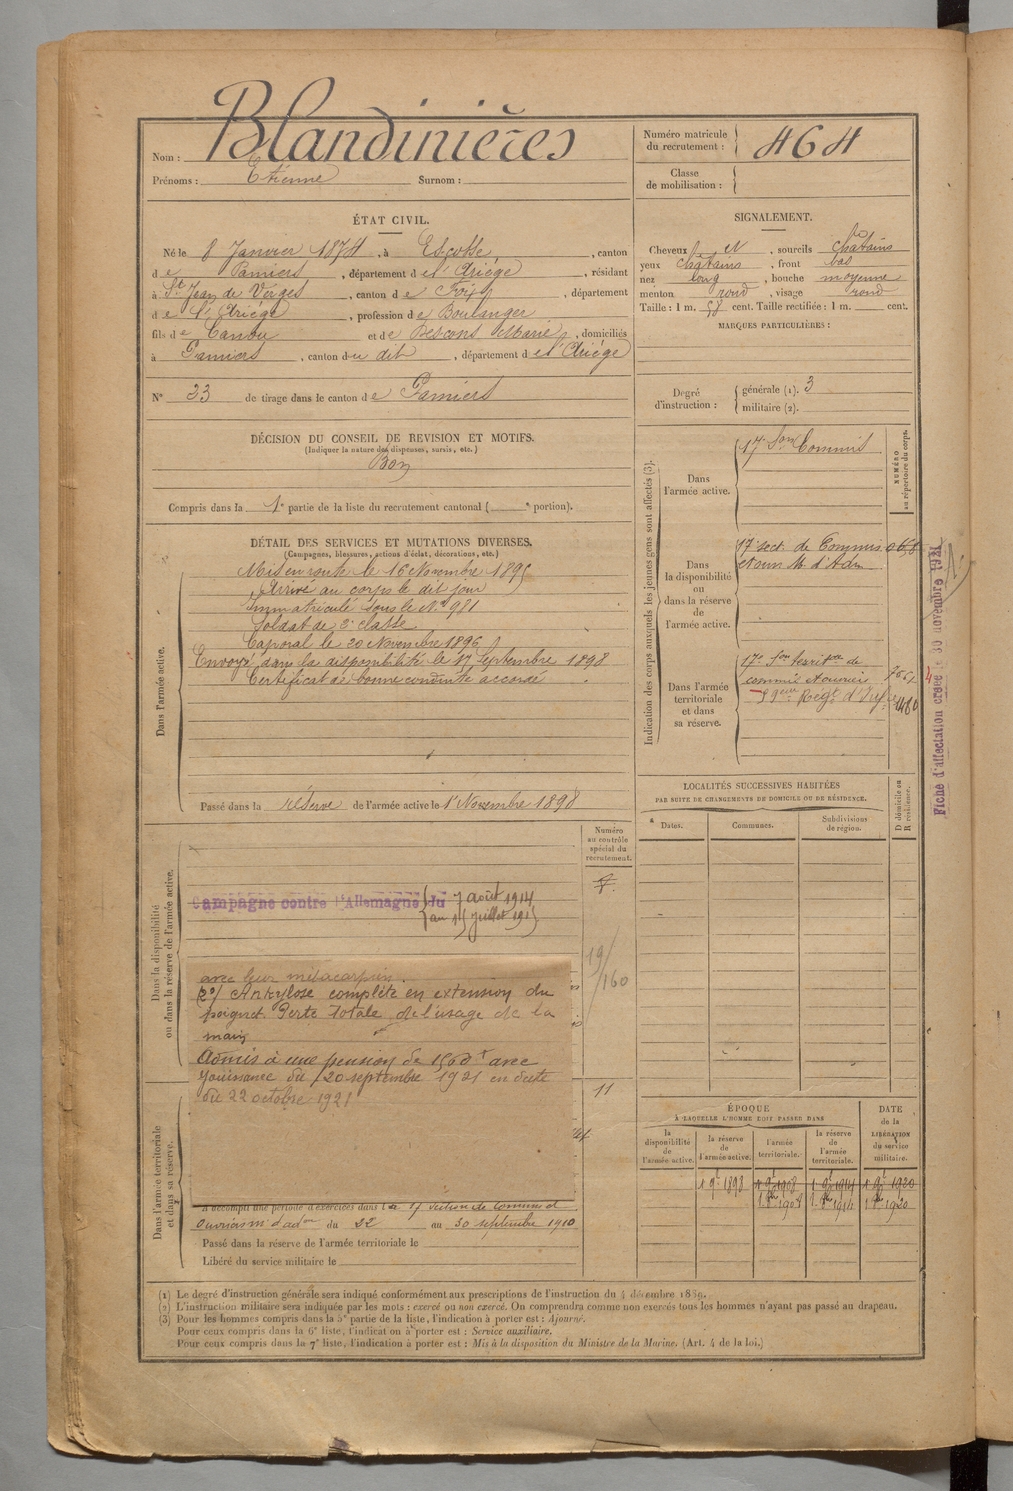 Nom : Blandinières
Prénoms : Etienne Surnom :
Numéro matricule du recrutement : 464
Classe de mobilisation :
ÉTAT CIVIL.
Né le 8 Janvier 1874, à Escosse, canton
de Pamiers, département de l'Ariège, résidant
à St Jean de Verges, canton de Foix, département
de l'Ariège, profession de Boulanger
fils de et de Marie, domiciliés
à Pamiers, canton du dit, département de l'Ariège
N° 23 de tirage dans le canton de Pamiers
SIGNALEMENT.
Cheveux , sourcils châtains
yeux châtains, front bas
nez long, bouche moyenne
menton rond, visage rond
Taille : 1 m. 58 cent. Taille rectifiée : 1 m. cent.
MARQUES PARTICULIÈRES :
Degré d'instruction : générale (1). 3
militaire (2).
DÉCISION DU CONSEIL DE REVISION ET MOTIFS.
(Indiquer la nature des dispenses, sursis, etc.)
Bon
Compris dans la 1e partie de la liste du recrutement cantonal ( e portion).
DÉTAIL DES SERVICES ET MUTATIONS DIVERSES.
(Campagnes, blessures, actions d'éclat, décorations, etc.)
Dans l'armée active.
Mis en route le 16 Novembre 1895
Arrivé au corps le dit jour
Immatriculé sous le N° 981
Soldat de 2e classe
Caporal le 20 Novembre 1896
Envoyé dans la disponibilité le 17 Septembre 1898
Certificat de bonne conduite accordé
Passé dans la réserve de l'armée active le 1er Novembre 1898
Indication des corps auxquels les jeunes gens sont affectés (3).
NUMÉRO au répertoire du corps.
Dans l'armée active.
17e Son Commis
Dans la disponibilité ou dans la réserve de l'armée active.
17e sect. de Commis
et d'Adm
Dans l'armée territoriale et dans sa réserve.
17e Son territle de
commis et ouvriers
Regt d'Inf
Fiche d'affectation créée le 30 novembre 1921
LOCALITÉS SUCCESSIVES HABITÉES
PAR SUITE DE CHANGEMENTS DE DOMICILE OU DE RÉSIDENCE.
Dates.
Communes.
Subdivisions de région.
D domicile ou R résidence.
Dans la disponibilité ou dans la réserve de l'armée active.
Numéro au contrôle spécial du recrutement.
Campagne contre l'Allemagne du 7 août 1914
au 15 Juillet 1915
19/160
avec leur métacarpien.
2°/ Ankylose complète en extension du
poignet. Perte totale de l'usage de la
main
Admis à une pension de avec
jouissance du 20 septembre 1921 en date
du 22 octobre 1921
11
Dans l'armée territoriale et dans sa réserve.
A accompli une période d'exercices dans la 17e section de commis et
ouvriers m. d'adon du 22 au 30 septembre 1910
Passé dans la réserve de l'armée territoriale le
Libéré du service militaire le
ÉPOQUE
À LAQUELLE L'HOMME DOIT PASSER DANS
DATE de la LIBÉRATION du service militaire.
la disponibilité de l'armée active.
la réserve de l'armée active.
l'armée territoriale.
la réserve de l'armée territoriale.
1 9bre 1898 1 9bre 1908 1 9bre 1914 1 9bre 1920
1 8bre 1908 1 8bre 1914 1 8bre 1920
(1) Le degré d'instruction générale sera indiqué conformément aux prescriptions de l'instruction du 4 décembre 1889.
(2) L'instruction militaire sera indiquée par les mots : exercé ou non exercé. On comprendra comme non exercés tous les hommes n'ayant pas passé au drapeau.
(3) Pour les hommes compris dans la 5e partie de la liste, l'indication à porter est : Ajourné.
Pour ceux compris dans la 6e liste, l'indication à porter est : Service auxiliaire.
Pour ceux compris dans la 7e liste, l'indication à porter est : Mis à la disposition du Ministre de la Marine. (Art. 4 de la loi.)